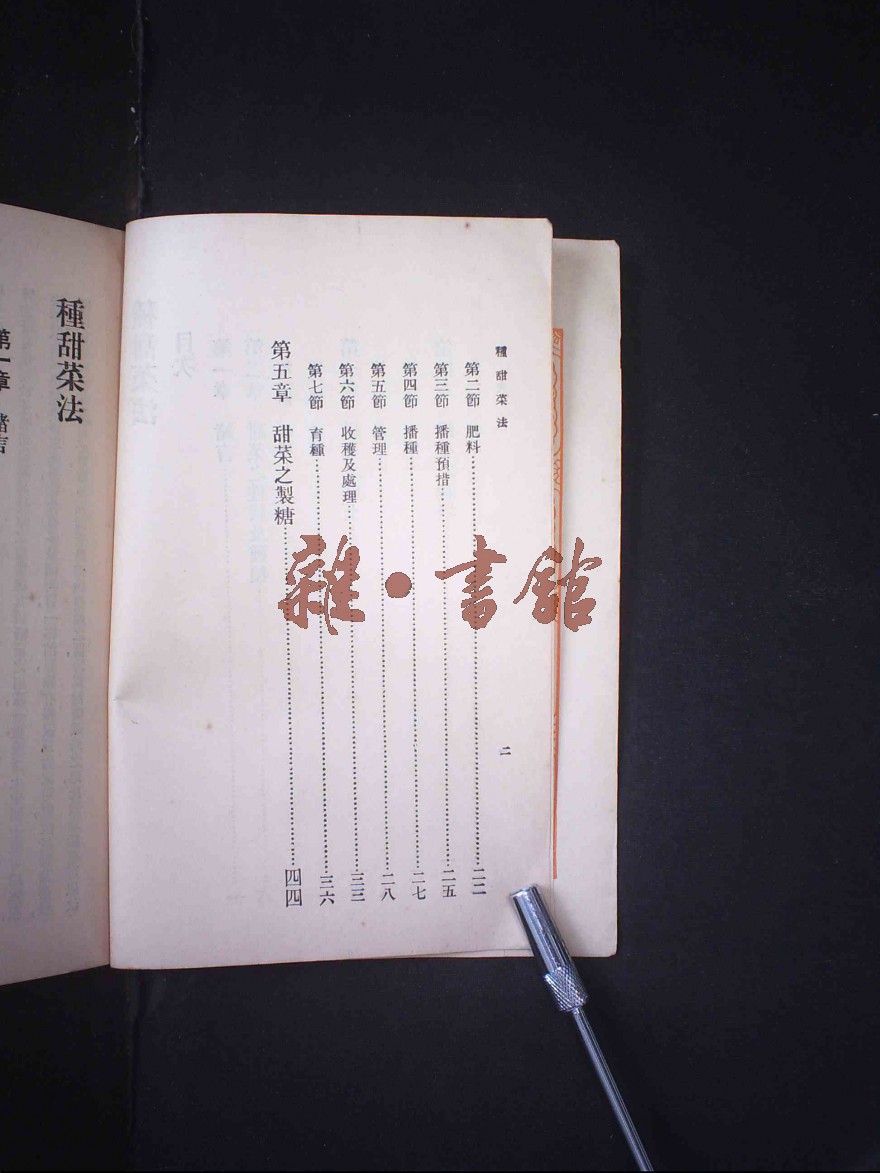 種甜菜法
第二節 肥料……二二
第三節 播種預措……二五
第四節 播種……二七
第五節 管理……二八
第六節 收穫及處理……三三
第七節 育種……三六
第五章 甜菜之製糖……四四
二
種甜菜法
第一章 緒言
雜·書館